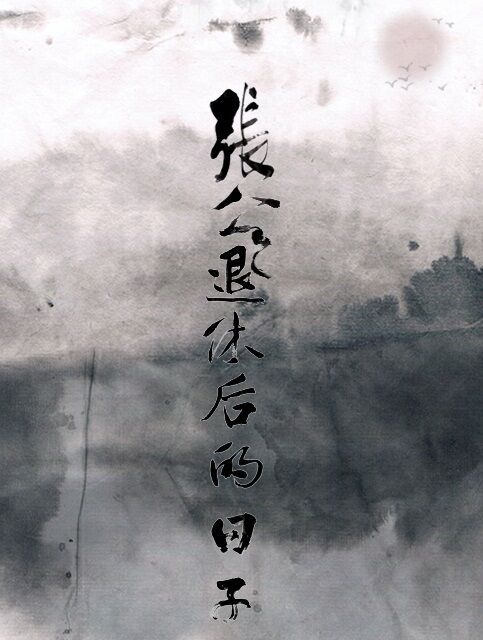 張公退休后的日子